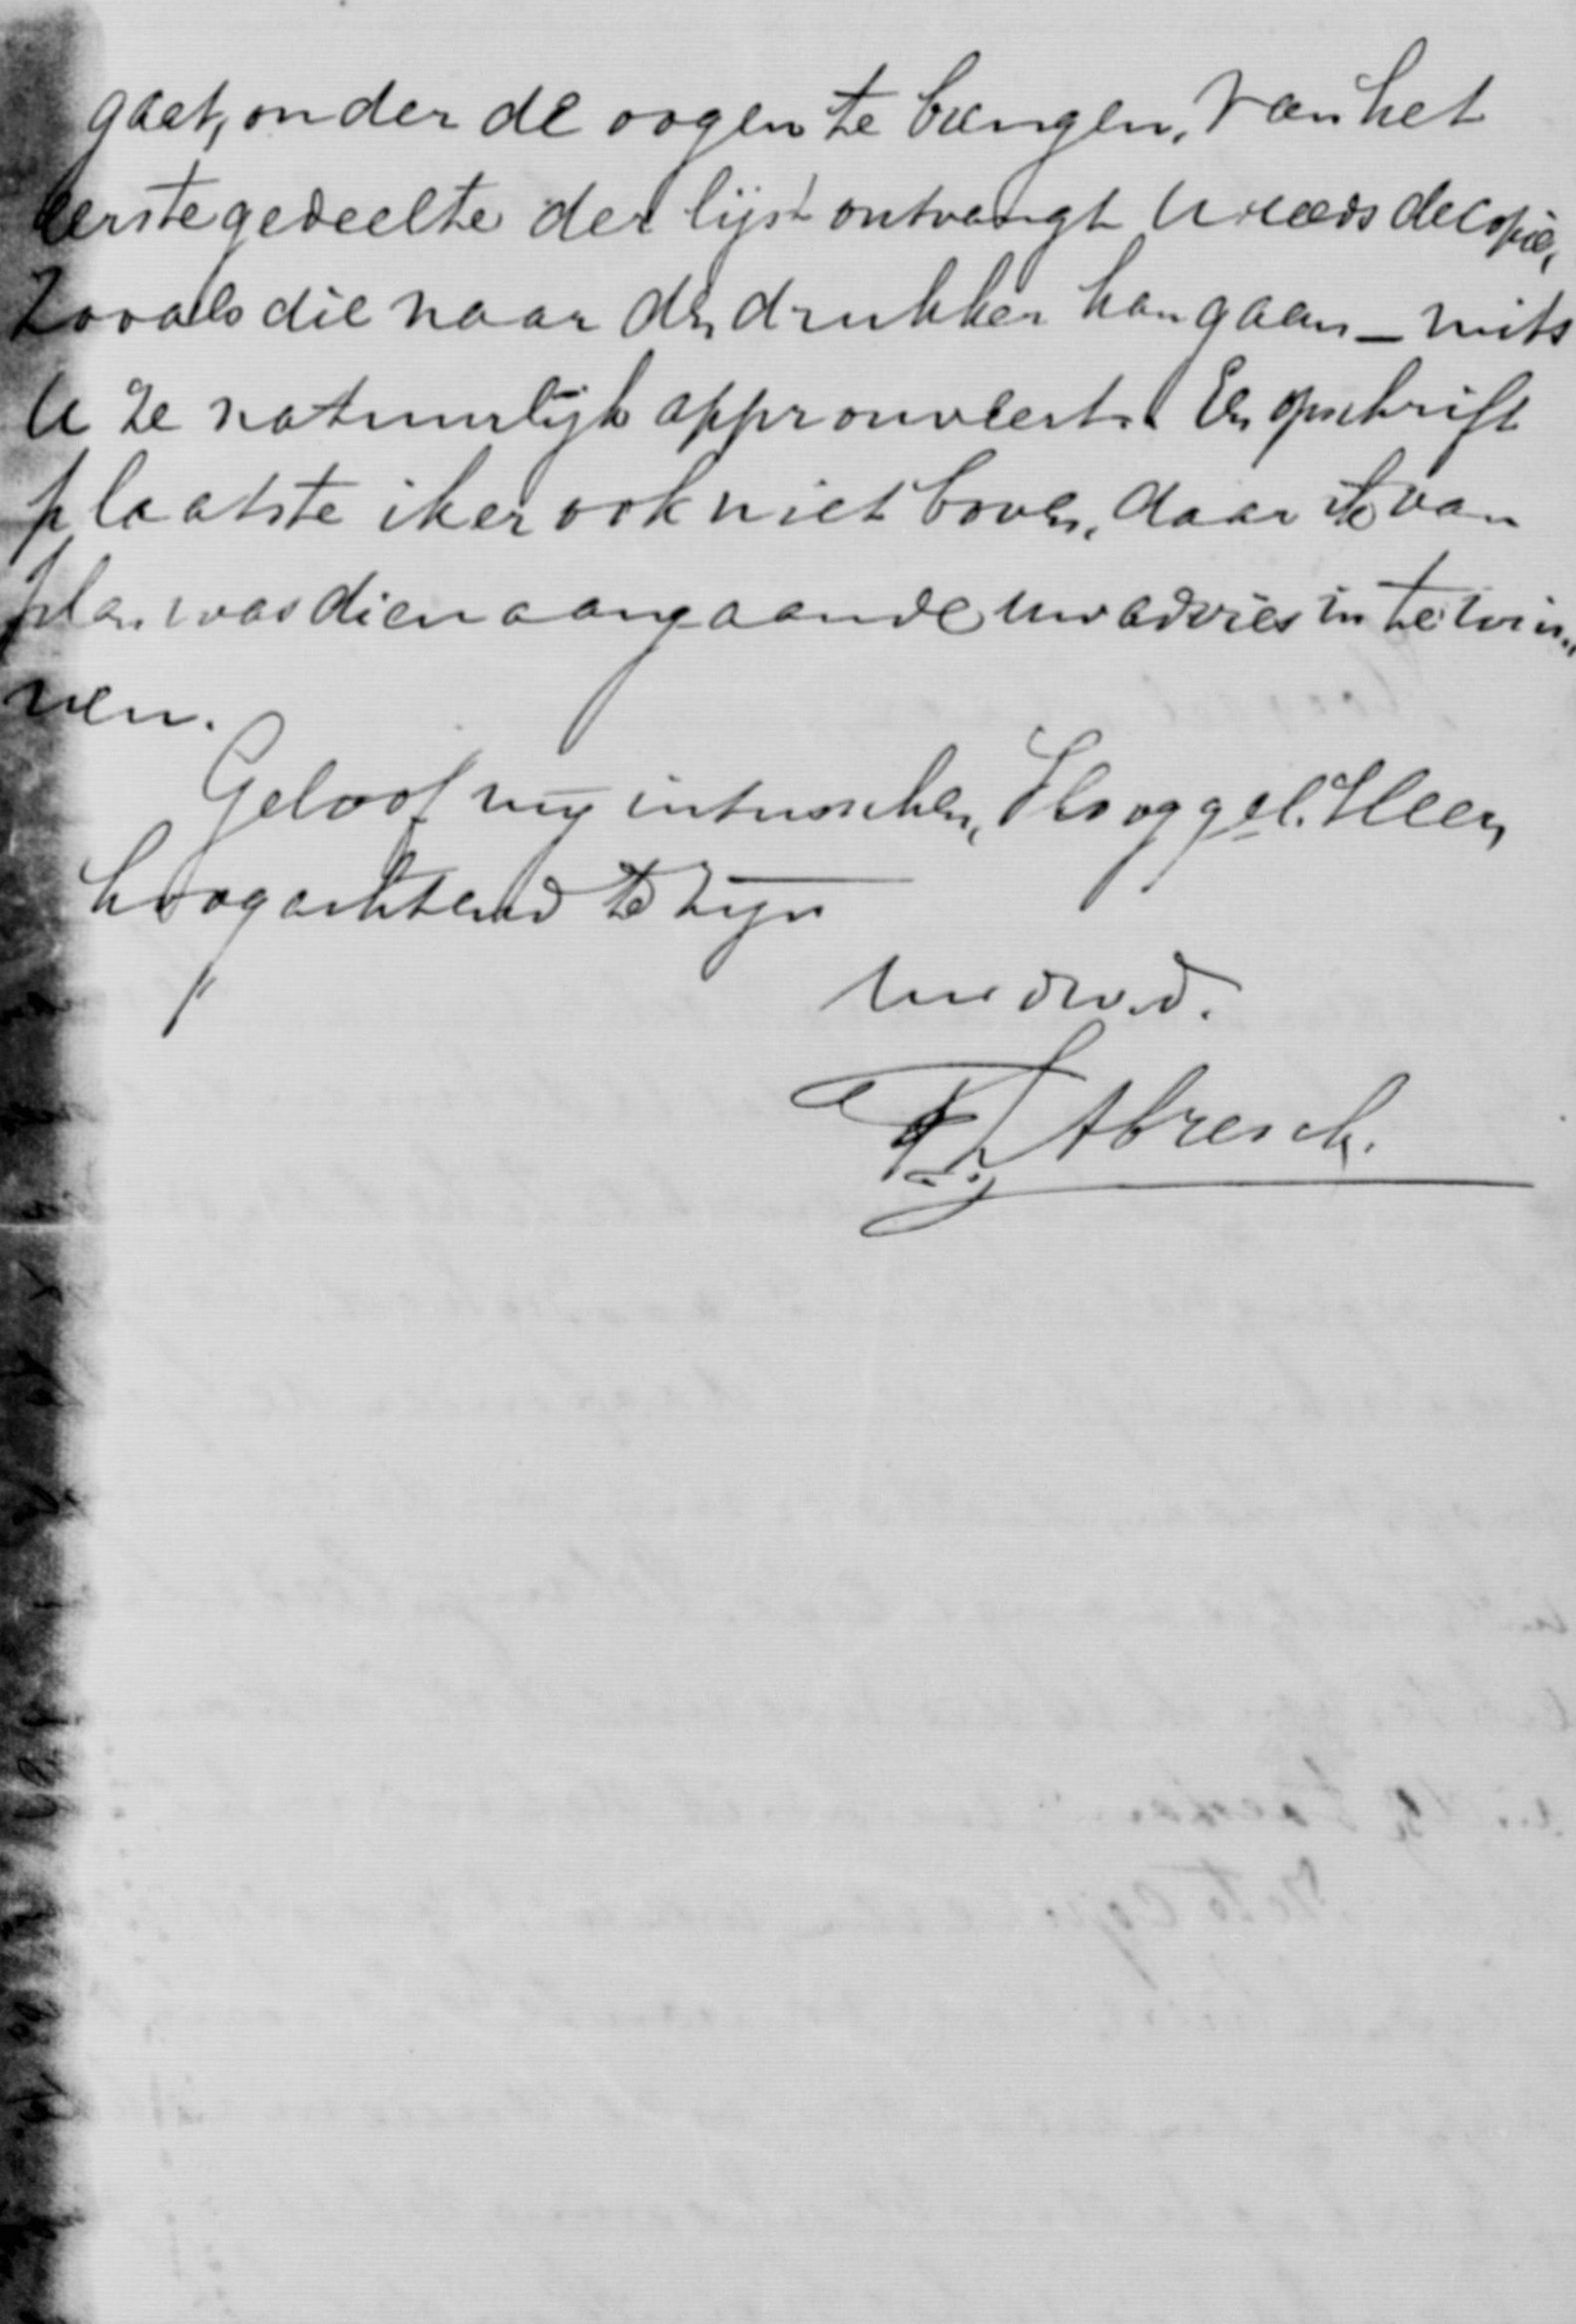 gaat, onder de oogen te brengen. Van het
eerste gedeelte der lijst ontvangt U reeds de copie,
zooals die naar den drukker kan gaan — mits
U ze natuurlijk approuveert. Een opschrift
plaatste ik er ook niet boven, daar ik van
plan was dienaangaande uw advies in te win-
nen.
Geloof mij intusschen, Hooggel. Heer,
hoogachtend te zijn
Uw dw. d.
Abresch.